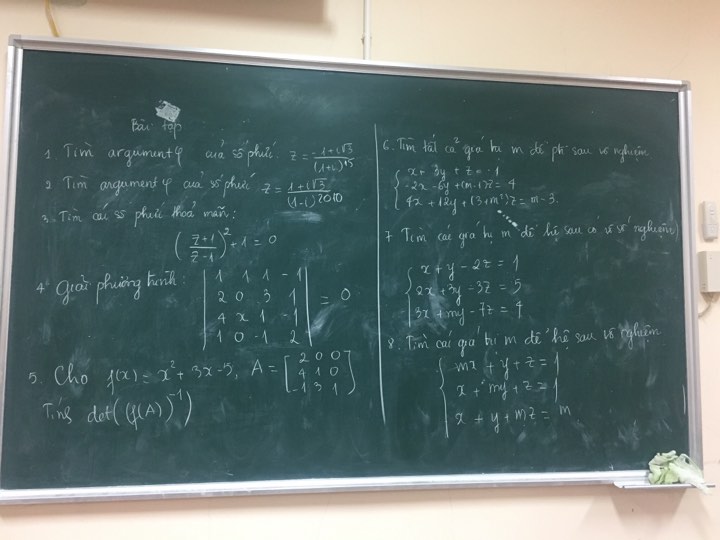 Bài tập
1. Tìm argument φ của số phức. z = (-1+i√3)/(1+i)^15
2. Tìm argument φ của số phức z = (1+i√3)/(1-i)^2010
3. Tìm các số phức thoả mãn:
((z+1)/(z-1))^2 + 1 = 0
4. Giải phương trình:
| 1 1 1 -1 |
| 2 0 3 1 |
| 4 x 1 -1 |
| 1 0 -1 2 | = 0
5. Cho f(x) = x^2 + 3x - 5, A = [2 0 0; 4 1 0; -1 3 1]
Tính det((f(A))^-1)
6. Tìm tất cả giá trị m để pt sau vô nghiệm
x + 3y + z = -1
-2x - 6y + (m-1)z = 4
4x + 12y + (3+m^2)z = m - 3.
7. Tìm các giá trị m để hệ sau có vô số nghiệm
x + y - 2z = 1
2x + 3y - 3z = 5
3x + my - 7z = 4
8. Tìm các giá trị m để hệ sau vô nghiệm
mx + y + z = 1
x + my + z = 1
x + y + mz = m